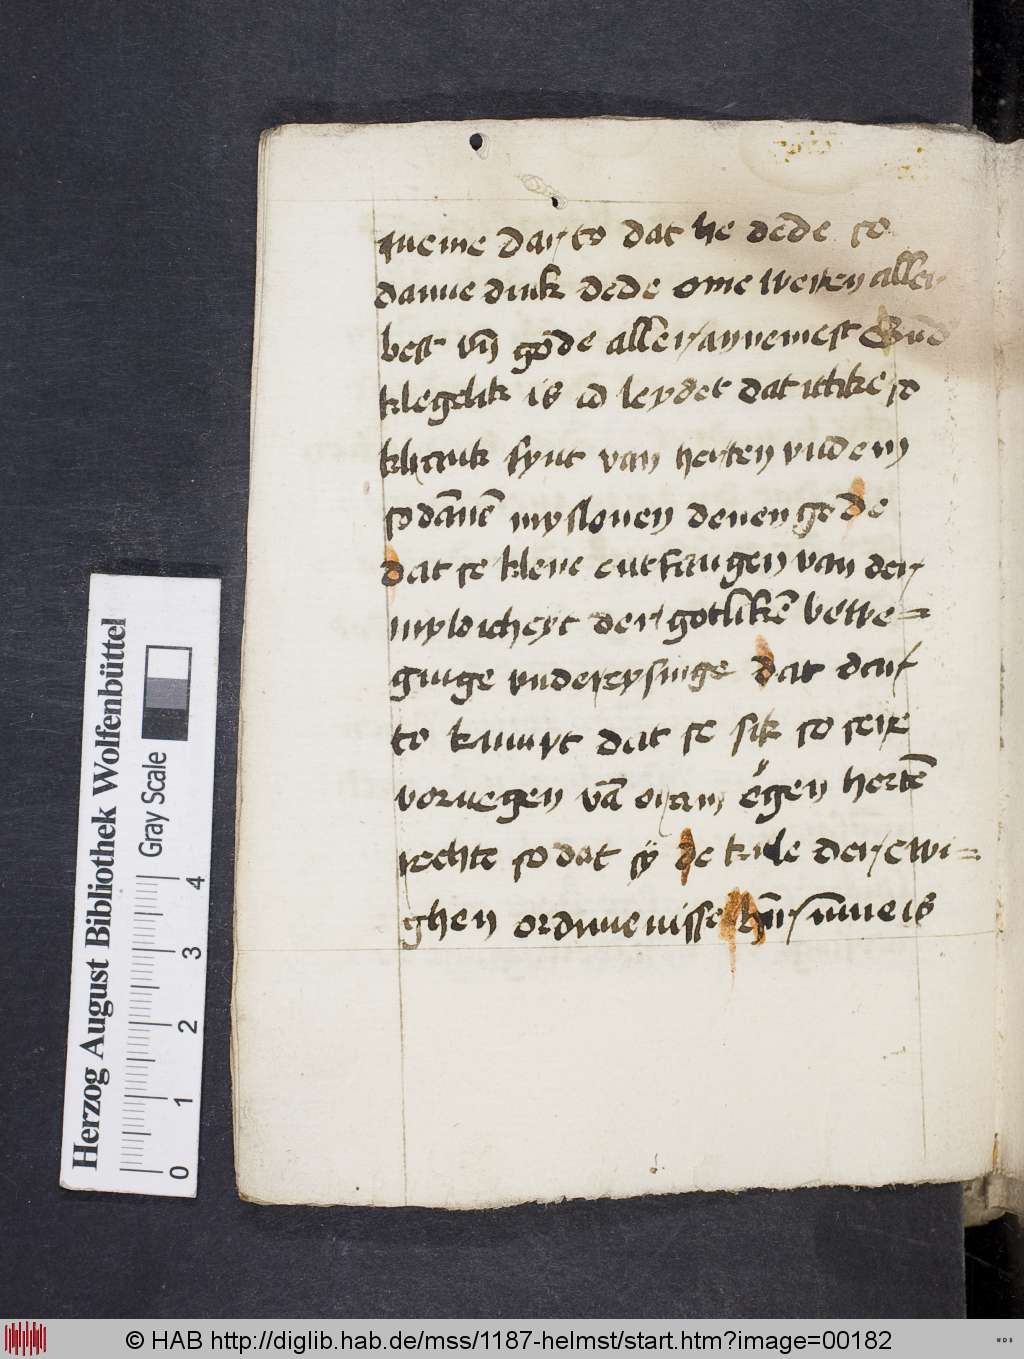 queme dar to dat he dede so
danne dink dede ome weren aller
best vn̄ gode aller annemest Vnd
klegelik is id leyder dat itlike so
klicink synt van herten vnde in
sodāneē mysloven deven gode
dat se kleve entfangen van der
myldicheyt der gotlikē bewe=
ginge vnde reysinge dat dar
to kumpt dat se sik so sere
vorvegen vā oram egen hertē
rechte so dat sy de kule der ewi=
ghen ordinne nisse hir vmme is
Herzog August Bibliothek Wolfenbüttel
Gray Scale
0 1 2 3 4
© HAB http://diglib.hab.de/mss/1187-helmst/start.htm?image=00182
WDB